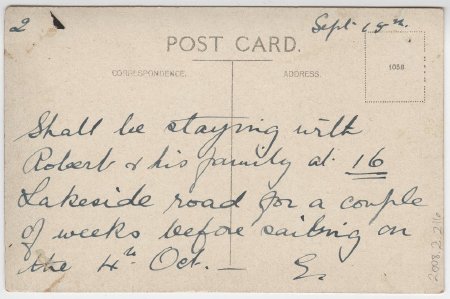 2
Sept 18th.
POST CARD.
CORRESPONDENCE.
ADDRESS.
1058
Shall be staying with
Robert & his family at 16
Lakeside road for a couple
of weeks before sailing on
the 4th Oct. — E.
2008.2.216